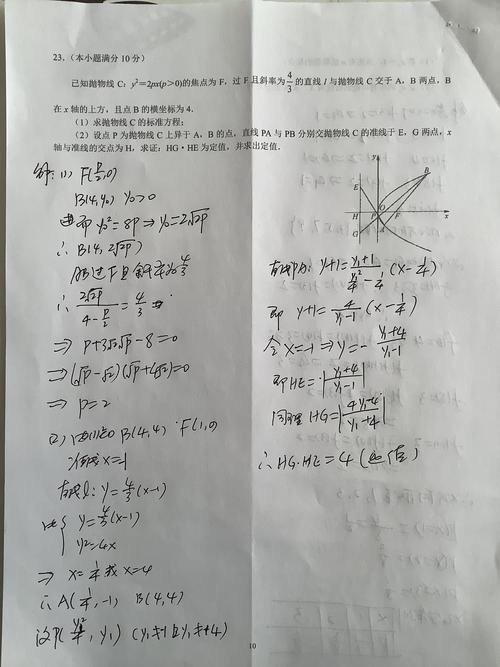 23.（本小题满分 10 分）
已知抛物线 C：y²=2px(p>0)的焦点为 F，过 F 且斜率为4/3的直线 l 与抛物线 C 交于 A，B 两点，B
在 x 轴的上方，且点 B 的横坐标为 4.
（1）求抛物线 C 的标准方程；
（2）设点 P 为抛物线 C 上异于 A，B 的点，直线 PA 与 PB 分别交抛物线 C 的准线于 E，G 两点，x
轴与准线的交点为 H，求证：HG·HE 为定值，并求出定值.
解：(1) F(p/2,0)
B(4,y₀) y₀>0
y₀²=8p⇒y₀=2√2p
∴ B(4,2√2p)
过F且斜率为4/3
∴ 2√2p/(4-p/2)=4/3
⇒ p+3√2√p-8=0
⇒(√p-√2)(√p+4√2)=0
⇒ p=2
(2) B(4,4) F(1,0)
准线x=-1
直线l：y=4/3(x-1)
{ y=4/3(x-1)
y²=4x
⇒ x=1/4或x=4
∴A(1/4,-1) B(4,4)
设P(y₁²/4, y₁) (y₁≠-1且y₁≠4)
y
E
B
H
P
O
F
x
G
A
直线PA：y+1=(y₁+1)/(y₁²/4-1/4)(x-1/4)
即 y+1=4/(y₁-1)(x-1/4)
令x=-1⇒y=-(y₁+4)/(y₁-1)
即HE=|-(y₁+4)/(y₁-1)|
同理 HG=|(4y₁-4)/(y₁+4)|
∴HG·HE=4(定值)
10